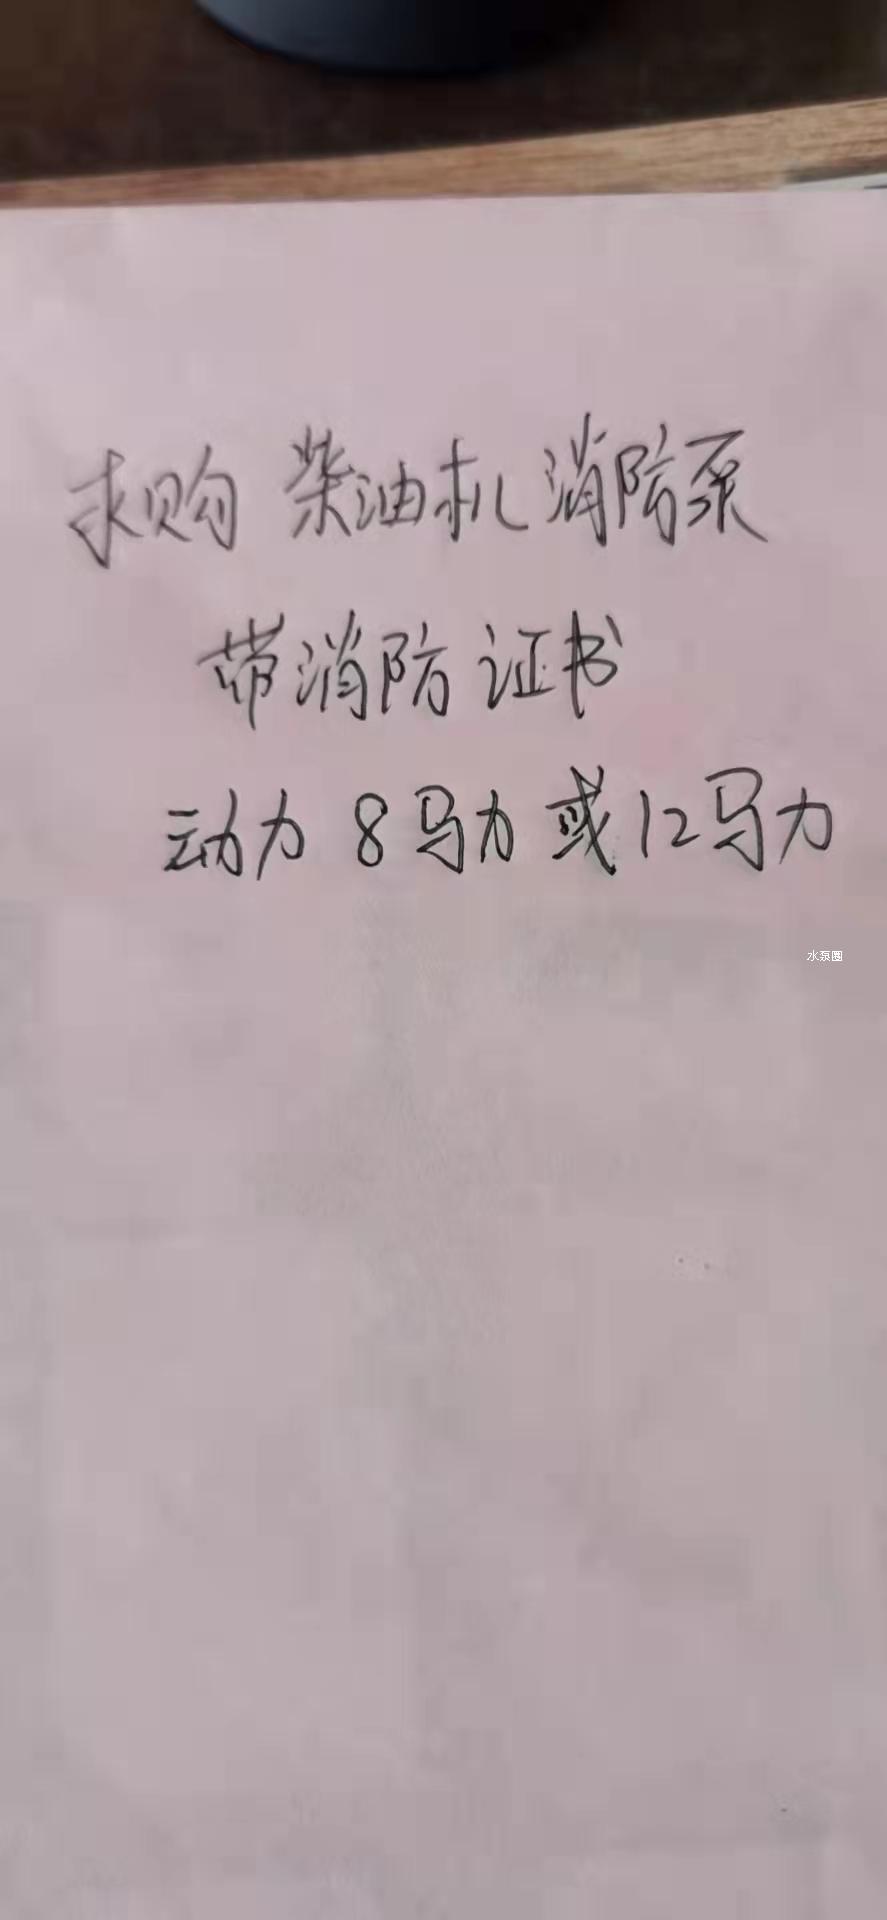 求购 柴油机消防泵
带消防证书
动力 8马力或12马力
水泵圈